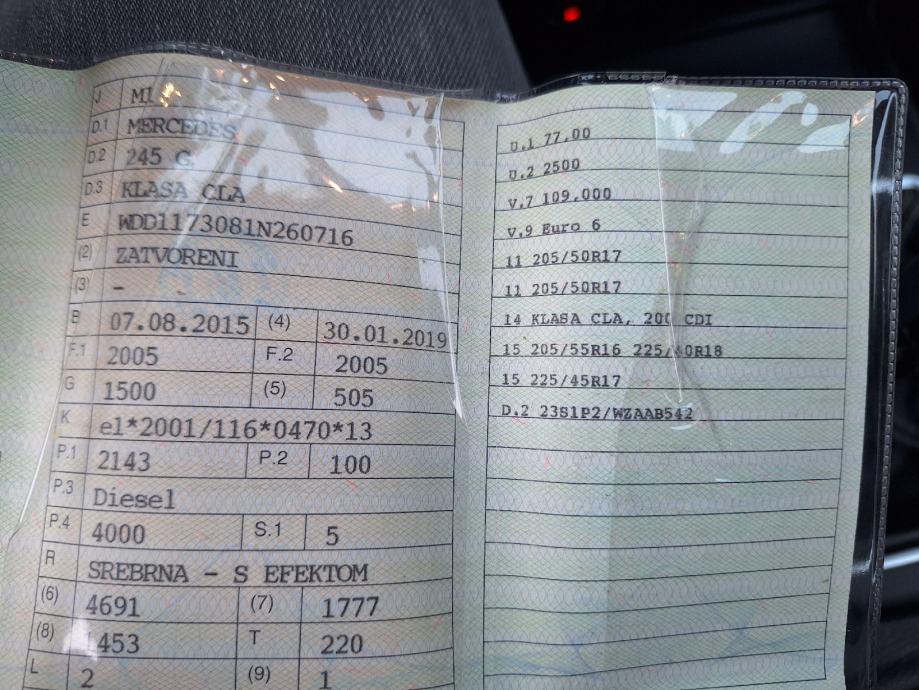 J M1
D.1 MERCEDES
D.2 245 G
D.3 KLASA CLA
E WDD1173081N260716
(2) ZATVORENI
(3) -
B 07.08.2015 (4) 30.01.2019
F.1 2005 F.2 2005
G 1500 (5) 505
K e1*2001/116*0470*13
P.1 2143 P.2 100
P.3 Diesel
P.4 4000 S.1 5
R SREBRNA - S EFEKTOM
(6) 4691 (7) 1777
(8) 1453 T 220
L 2 (9) 1
U.1 77,00
U.2 2500
V.7 109,000
V.9 Euro 6
11 205/50R17
11 205/50R17
14 KLASA CLA, 200 CDI
15 205/55R16 225/40R18
15 225/45R17
D.2 23S1P2/WZAAB542